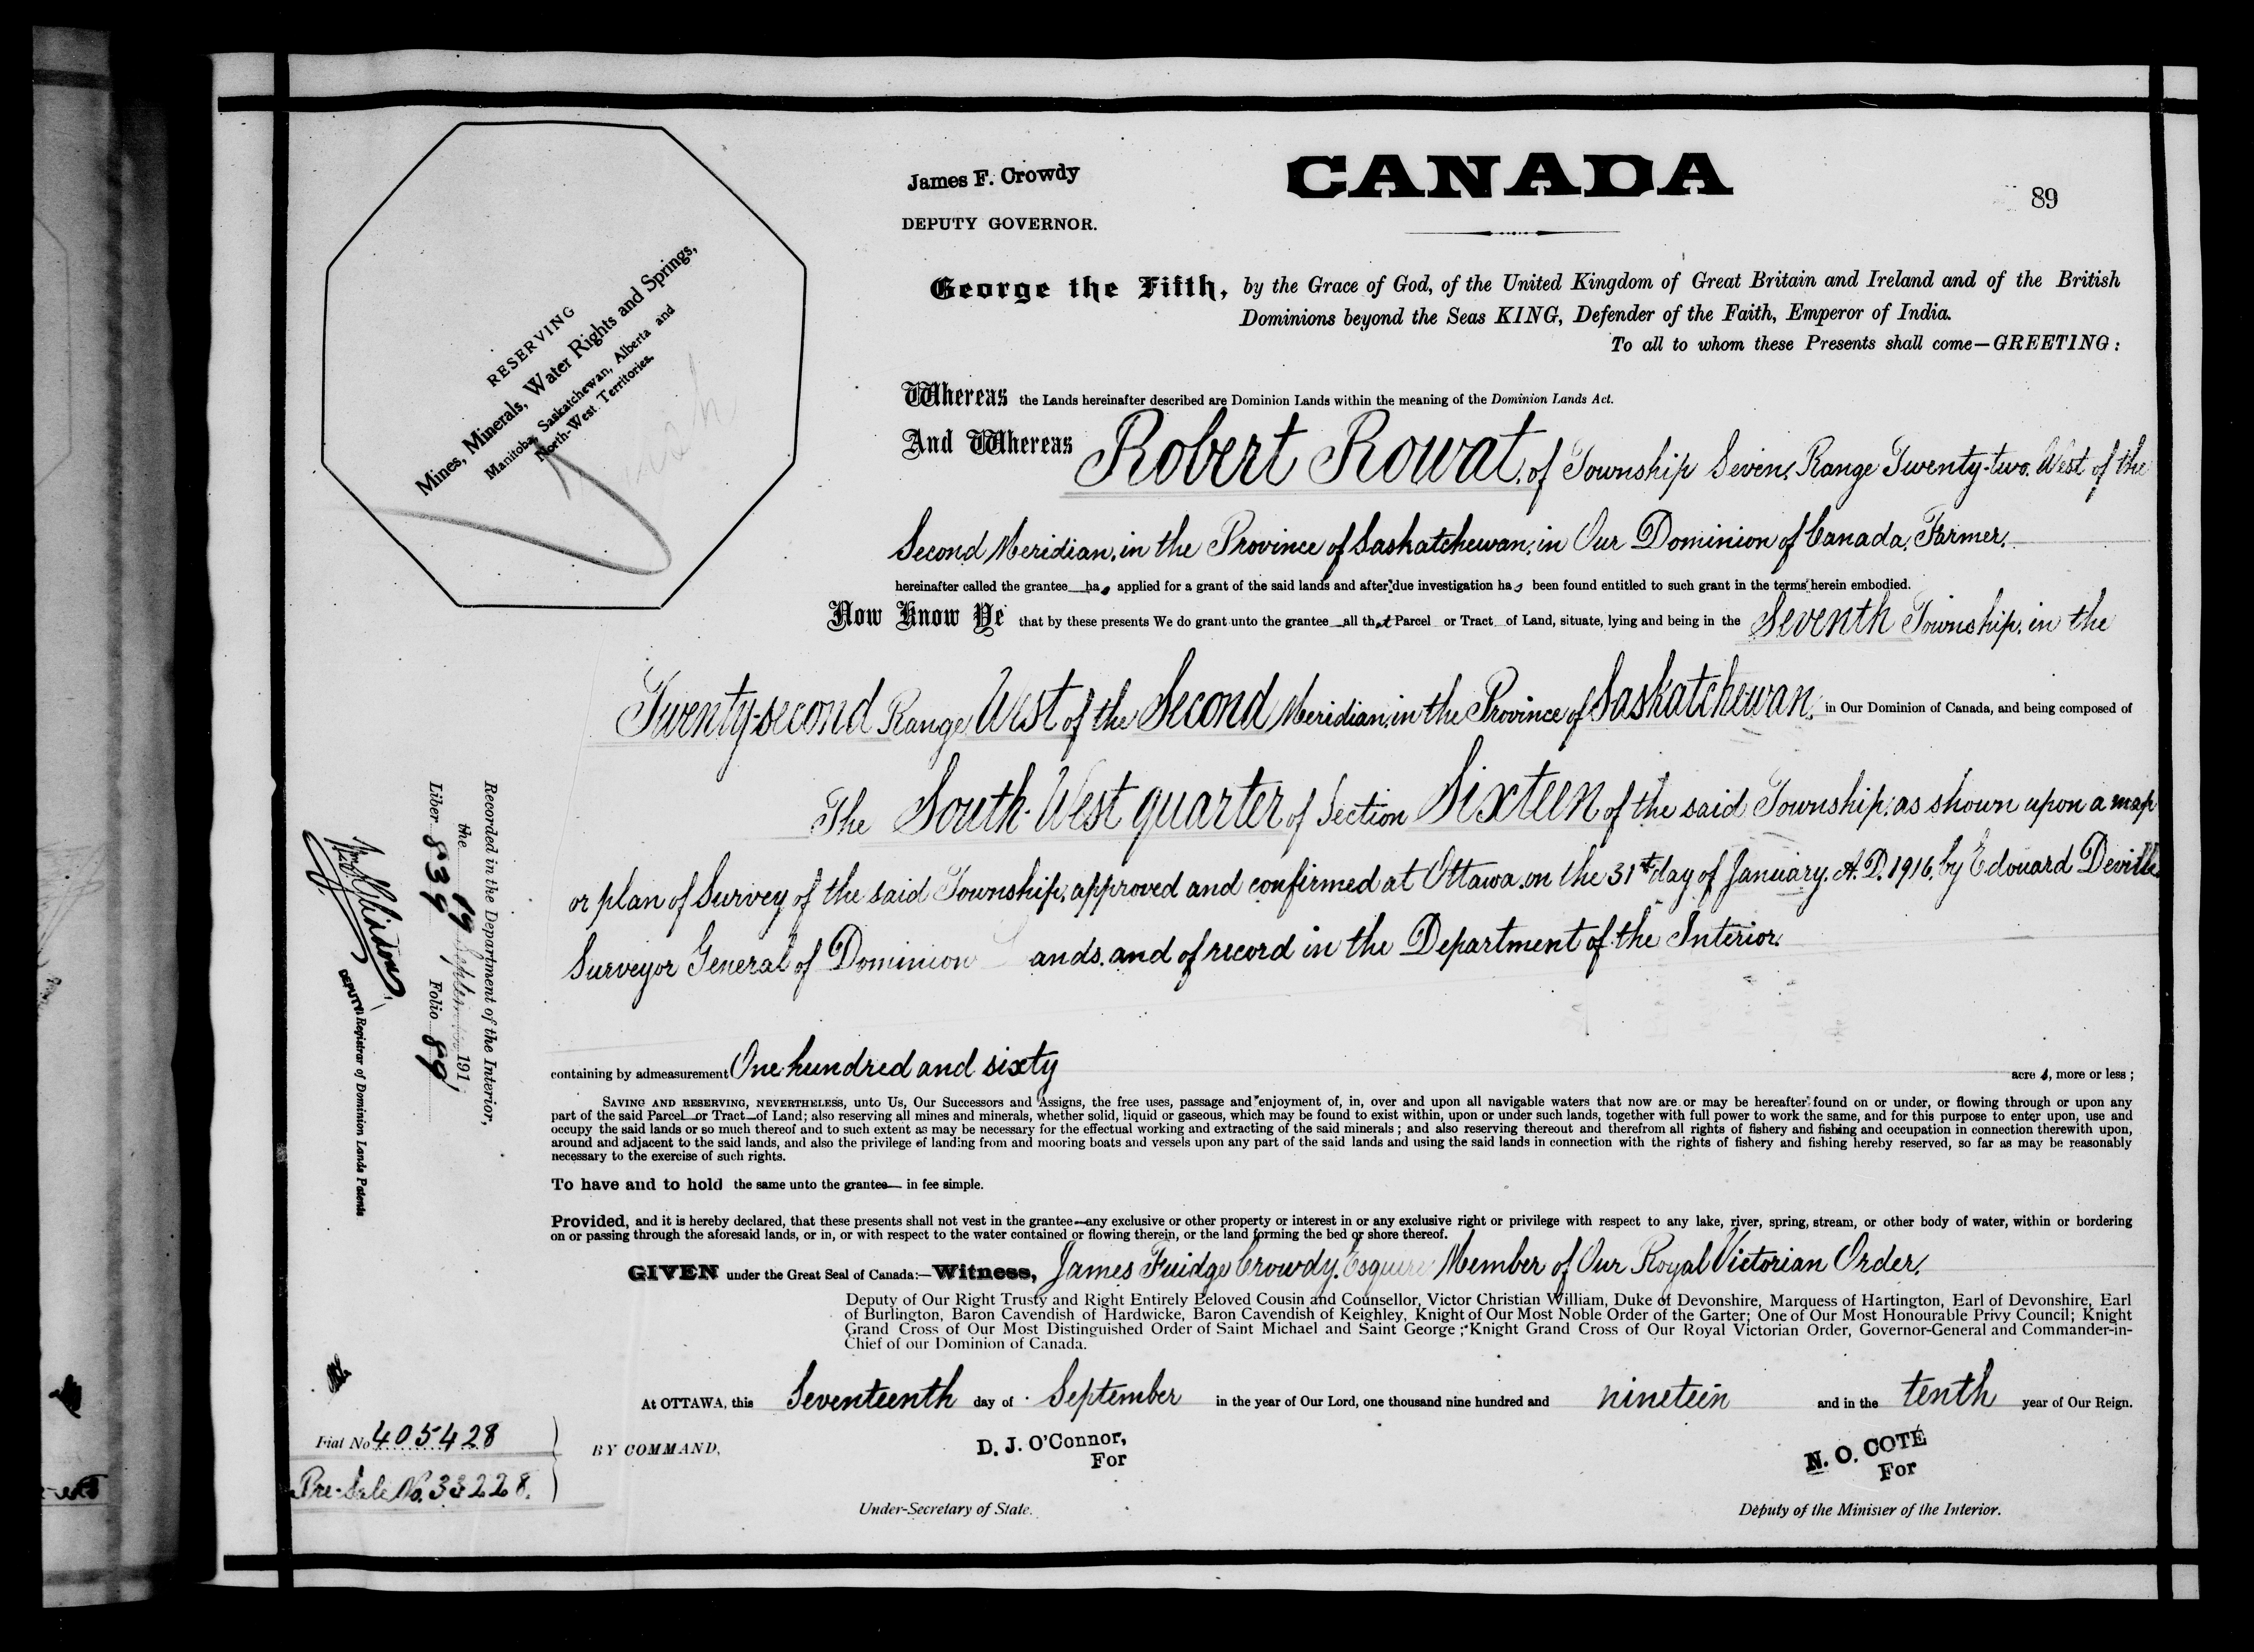 James F. Crowdy
DEPUTY GOVERNOR.
CANADA
89
RESERVING
Mines, Minerals, Water Rights and Springs,
Manitoba, Saskatchewan, Alberta and
North-West Territories.
George the Fifth, by the Grace of God, of the United Kingdom of Great Britain and Ireland and of the British
Dominions beyond the Seas KING, Defender of the Faith, Emperor of India.
To all to whom these Presents shall come—GREETING:
Whereas the Lands hereinafter described are Dominion Lands within the meaning of the Dominion Lands Act.
And Whereas Robert Rowat, of Township Seven, Range Twenty-two, West of the
Second Meridian, in the Province of Saskatchewan, in Our Dominion of Canada, Farmer,
hereinafter called the grantee has applied for a grant of the said lands and after due investigation has been found entitled to such grant in the terms herein embodied.
Now Know Ye that by these presents We do grant unto the grantee all that Parcel or Tract of Land, situate, lying and being in the Seventh Township, in the
Twenty-second Range West of the Second Meridian, in the Province of Saskatchewan, in Our Dominion of Canada, and being composed of
The South-West quarter of Section Sixteen of the said Township, as shown upon a map
or plan of Survey of the said Township, approved and confirmed at Ottawa, on the 31st day of January, A.D. 1916, by Edouard Deville
Surveyor General of Dominion ands, and of record in the Department of the Interior.
containing by admeasurement One hundred and sixty acres, more or less;
SAVING AND RESERVING, NEVERTHELESS, unto Us, Our Successors and Assigns, the free uses, passage and enjoyment of, in, over and upon all navigable waters that now are or may be hereafter found on or under, or flowing through or upon any
part of the said Parcel or Tract of Land; also reserving all mines and minerals, whether solid, liquid or gaseous, which may be found to exist within, upon or under such lands, together with full power to work the same, and for this purpose to enter upon, use and
occupy the said lands or so much thereof and to such extent as may be necessary for the effectual working and extracting of the said minerals; and also reserving thereout and therefrom all rights of fishery and fishing and occupation in connection therewith upon,
around and adjacent to the said lands, and also the privilege of landing from and mooring boats and vessels upon any part of the said lands and using the said lands in connection with the rights of fishery and fishing hereby reserved, so far as may be reasonably
necessary to the exercise of such rights.
To have and to hold the same unto the grantee in fee simple.
Provided, and it is hereby declared, that these presents shall not vest in the grantee any exclusive or other property or interest in or any exclusive right or privilege with respect to any lake, river, spring, stream, or other body of water, within or bordering
on or passing through the aforesaid lands, or in, or with respect to the water contained or flowing therein, or the land forming the bed or shore thereof.
GIVEN under the Great Seal of Canada:—Witness, James Fuidge Crowdy, Esquire Member of Our Royal Victorian Order,
Deputy of Our Right Trusty and Right Entirely Beloved Cousin and Counsellor, Victor Christian William, Duke of Devonshire, Marquess of Hartington, Earl of Devonshire, Earl
of Burlington, Baron Cavendish of Hardwicke, Baron Cavendish of Keighley, Knight of Our Most Noble Order of the Garter; One of Our Most Honourable Privy Council; Knight
Grand Cross of Our Most Distinguished Order of Saint Michael and Saint George; Knight Grand Cross of Our Royal Victorian Order, Governor-General and Commander-in-
Chief of our Dominion of Canada.
At OTTAWA, this Seventeenth day of September in the year of Our Lord, one thousand nine hundred and nineteen and in the tenth year of Our Reign.
BY COMMAND,
D. J. O'Connor,
For
Under-Secretary of State.
N. O. COTÉ
For
Deputy of the Minister of the Interior.
Recorded in the Department of the Interior,
the 19 September 191
Liber 838 Folio 89
DEPUTY Registrar of Dominion Lands Patents
Fiat No 405428
Pre-Sale No. 33228.